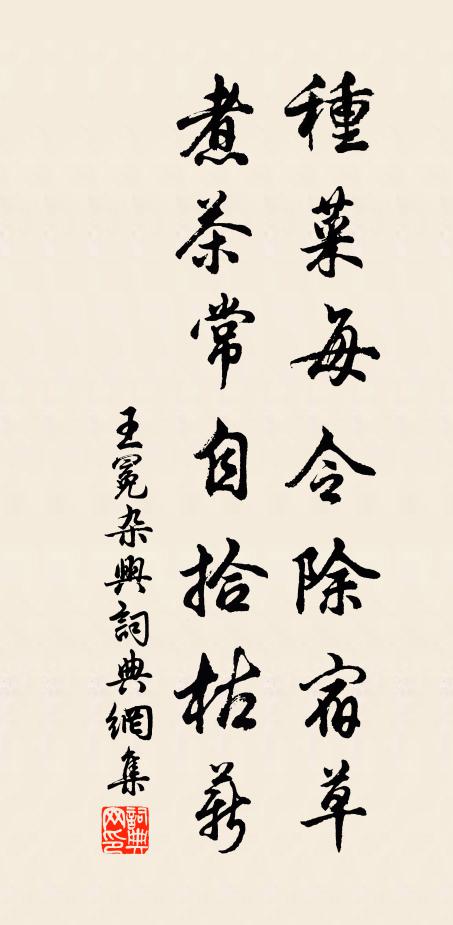 種菜每令除宿草
煮茶常自拾枯薪
王冕杂興詞典網集
詞典网印